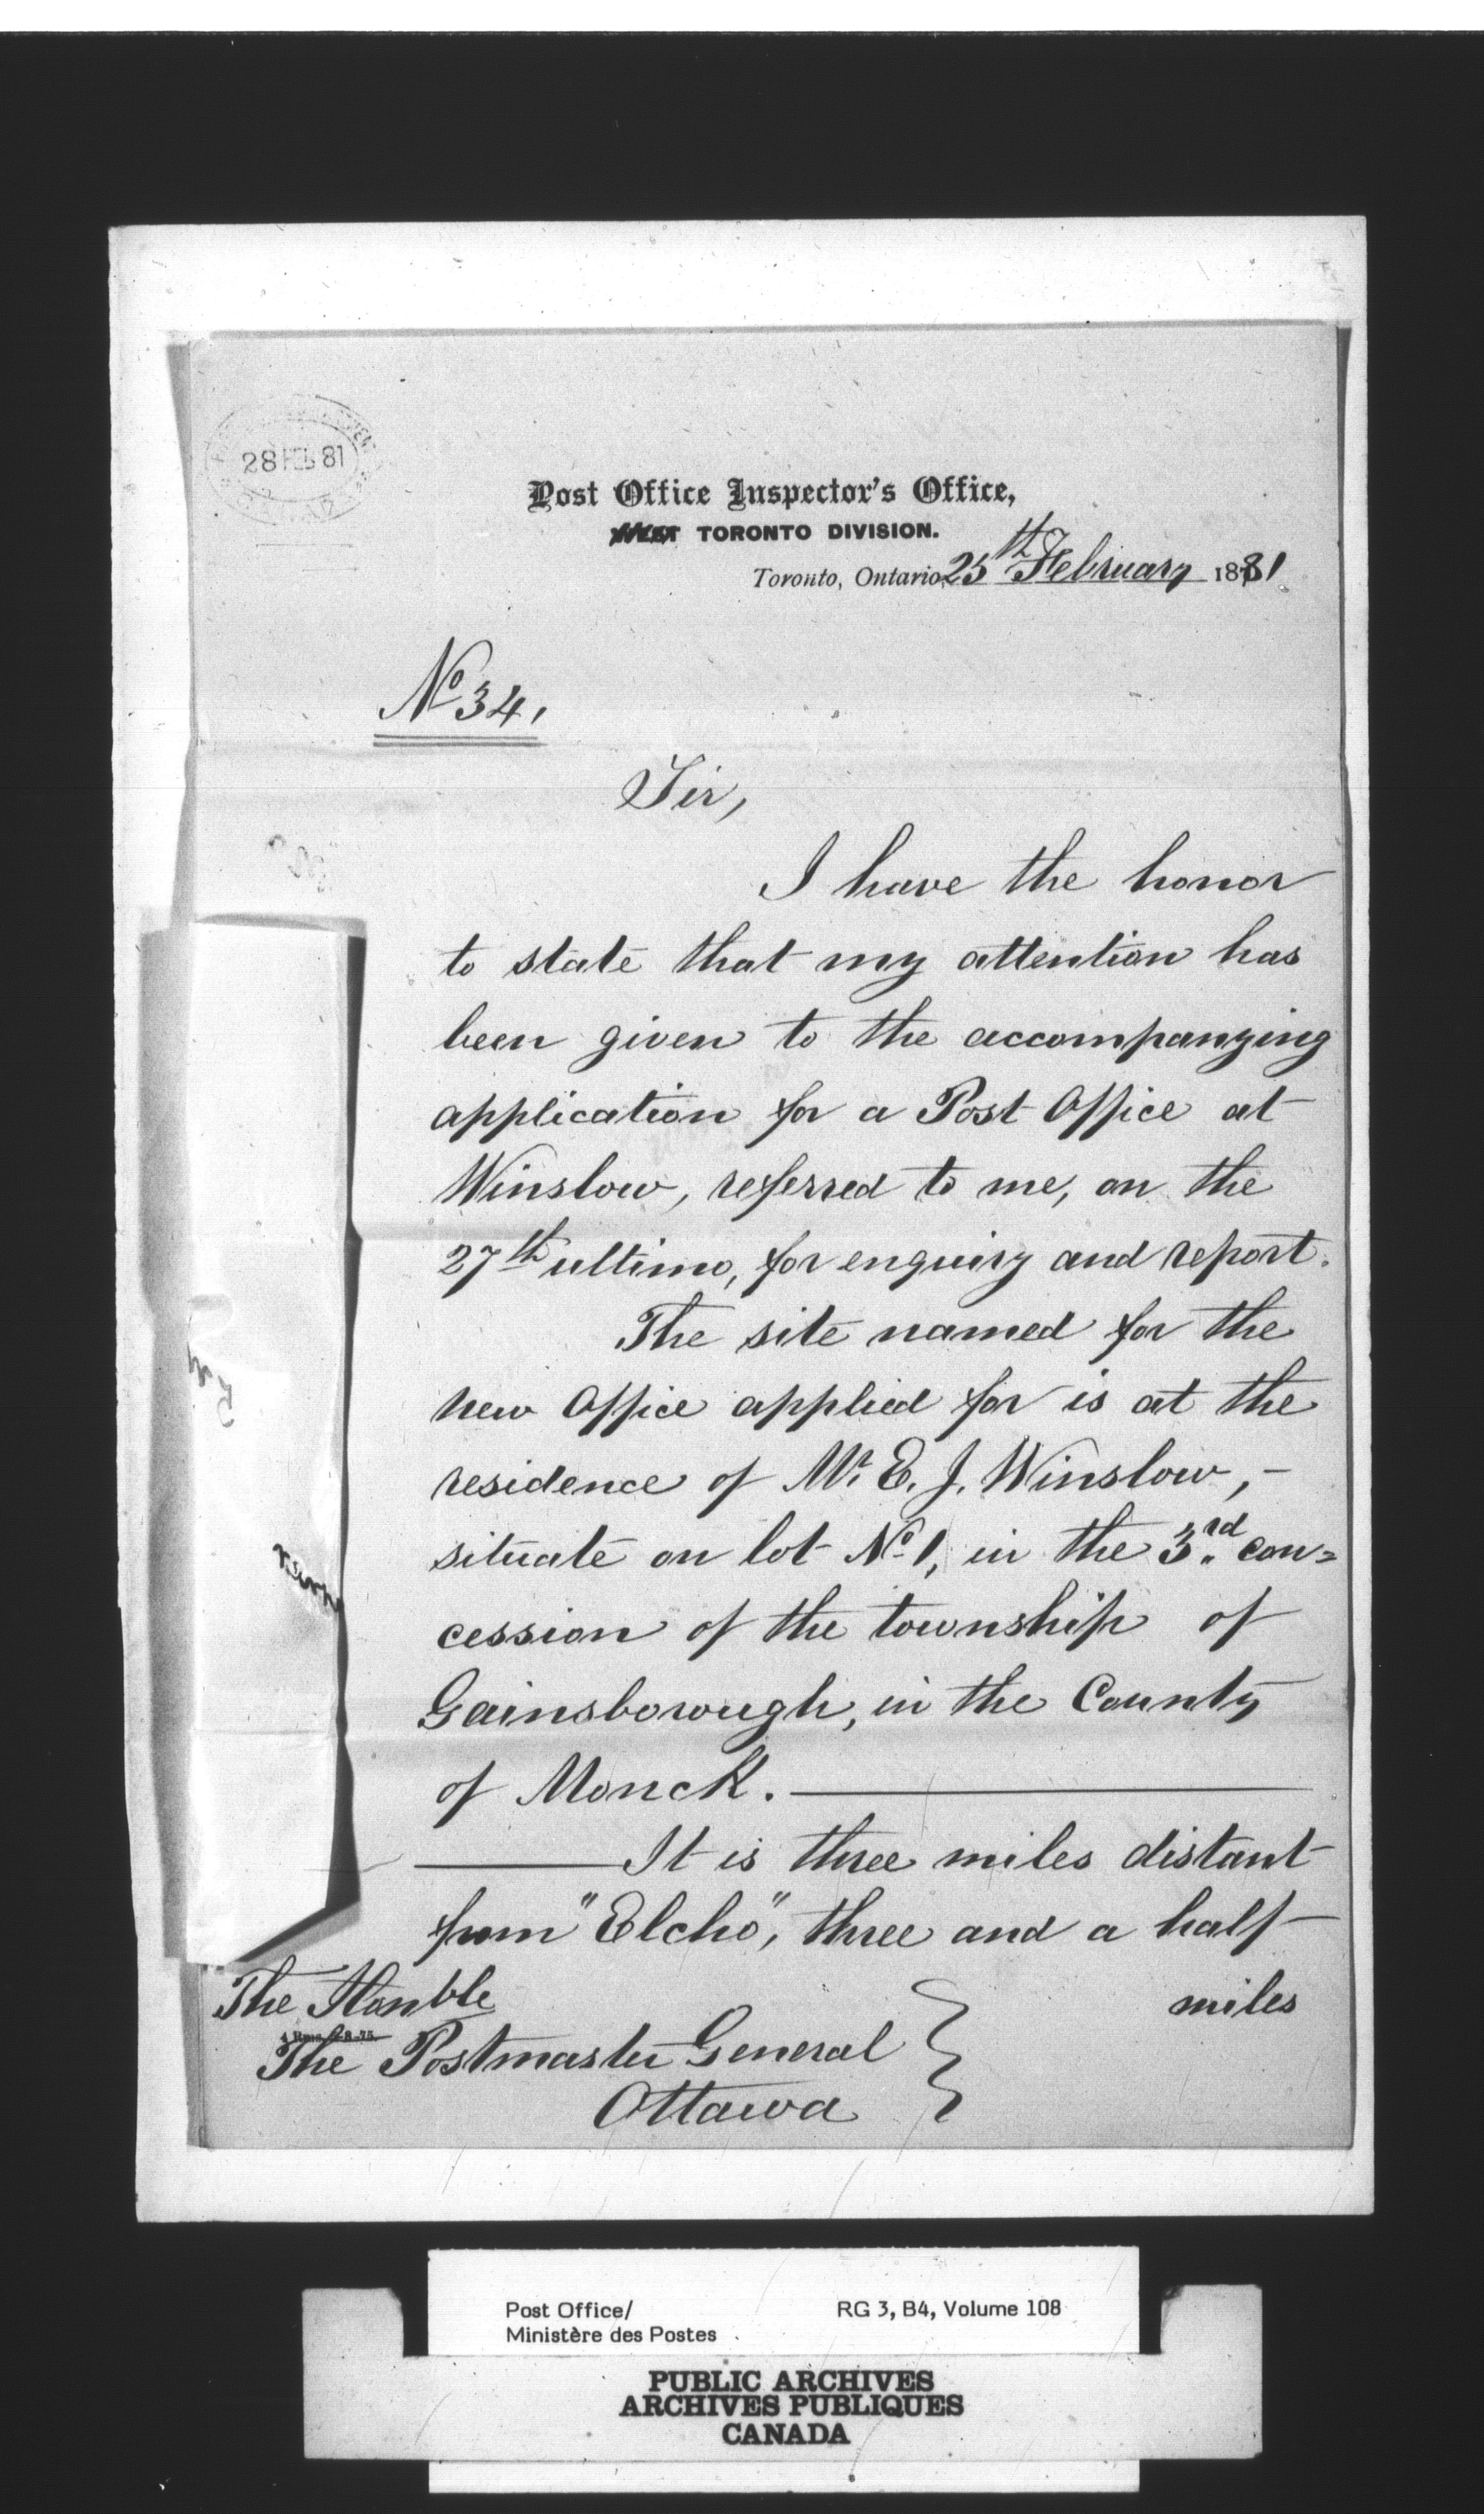 28 FEB 81
Post Office Inspector's Office,
WEST TORONTO DIVISION.
Toronto, Ontario, 25th February 1881
No 34.
Sir,
I have the honor
to state that my attention has
been given to the accompanying
application for a Post Office at
Winslow, referred to me, on the
27th ultimo, for enquiry and report.
The site named for the
new Office applied for is at the
residence of Mr. E. J. Winslow,-
situate on lot No 1, in the 3rd con=
cession of the township of
Gainsborough, in the County
of Monck.
It is three miles distant
from "Elcho", three and a half
miles
The Honble
The Postmaster General
Ottawa
Post Office/
Ministère des Postes
RG 3, B4, Volume 108
PUBLIC ARCHIVES
ARCHIVES PUBLIQUES
CANADA